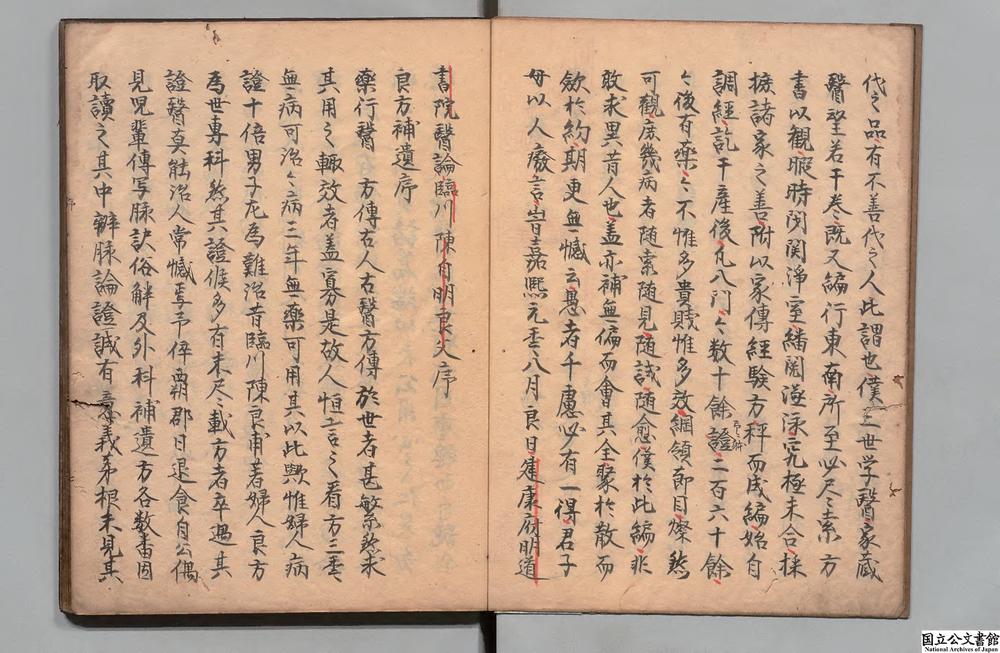 代之品有不善代之人此謂也僕三世学醫家蔵
醫聖若干巻既又編行東南所至必尽索方
書以観暇時閉関浄室繙閲涵泳究極未合採
摭諸家之善附以家傳経験方秤而成編始自
調經訖于産後凡八門〻数十餘證二百六十餘
〻後有薬〻不惟多貴賤惟多效綱領節目燦然
可觀庶幾病者随索随見随試随愈僕於此編非
敢求異昔人也盖亦補無偏而會其全聚於散而
歛於約期更無憾云愚者千慮必有一得君子
毋以人廢言旹嘉熙元年八月良日建康府明道
書院醫論臨川陳自明良父序
良方補遺序
薬行醫方傳古人右醫方傳於世者甚繁然求
其用之輙效者盖寡是故人恒言之看方三年
無病可治〻病三年無薬可用其以此歟惟婦人病
證十倍男子尤為難治昔臨川陳良甫著婦人良方
為世専科然其證候多有未尽〻載方者卒遇其
證醫莫能治人常憾焉予倅覇郡日退食自公偶
見児輩傳写脉訣俗解及外科補遺方各数番因
取讀之其中辨脉論證誠有意義苐根未見其
国立公文書館
National Archives of Japan